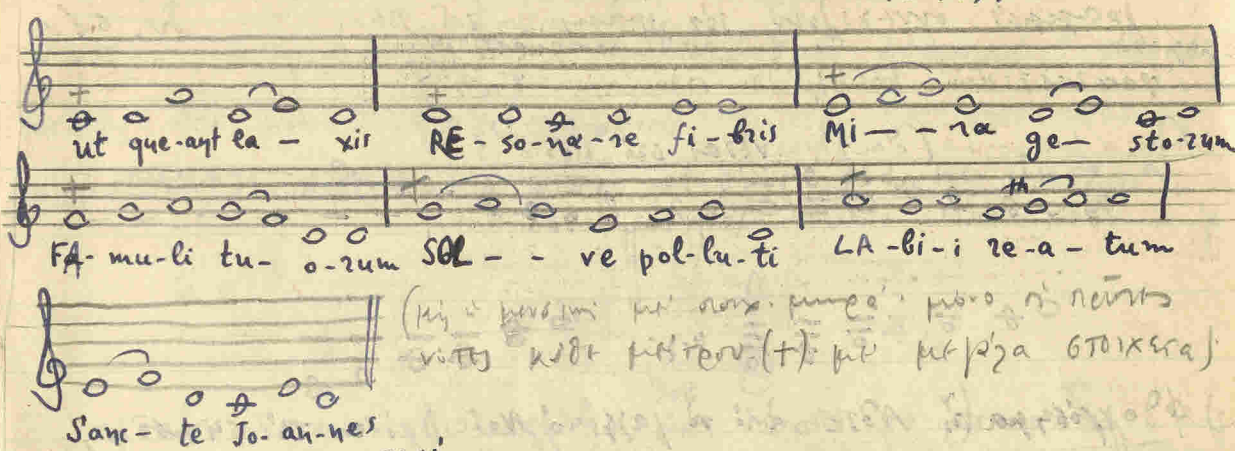 ut que-ant la – xis RE-so-na-re fi-bris Mi – – ra ge – sto-rum
FA-mu-li tu- o-rum SOL – – ve pol-lu-ti LA-bi-i re-a-tum
Sanc-te Jo-an-nes
(μὲ μικρά· μόνο οἱ πρῶτες
νότες κάθε μέτρου (+) μὲ μεγάλα στοιχεῖα)